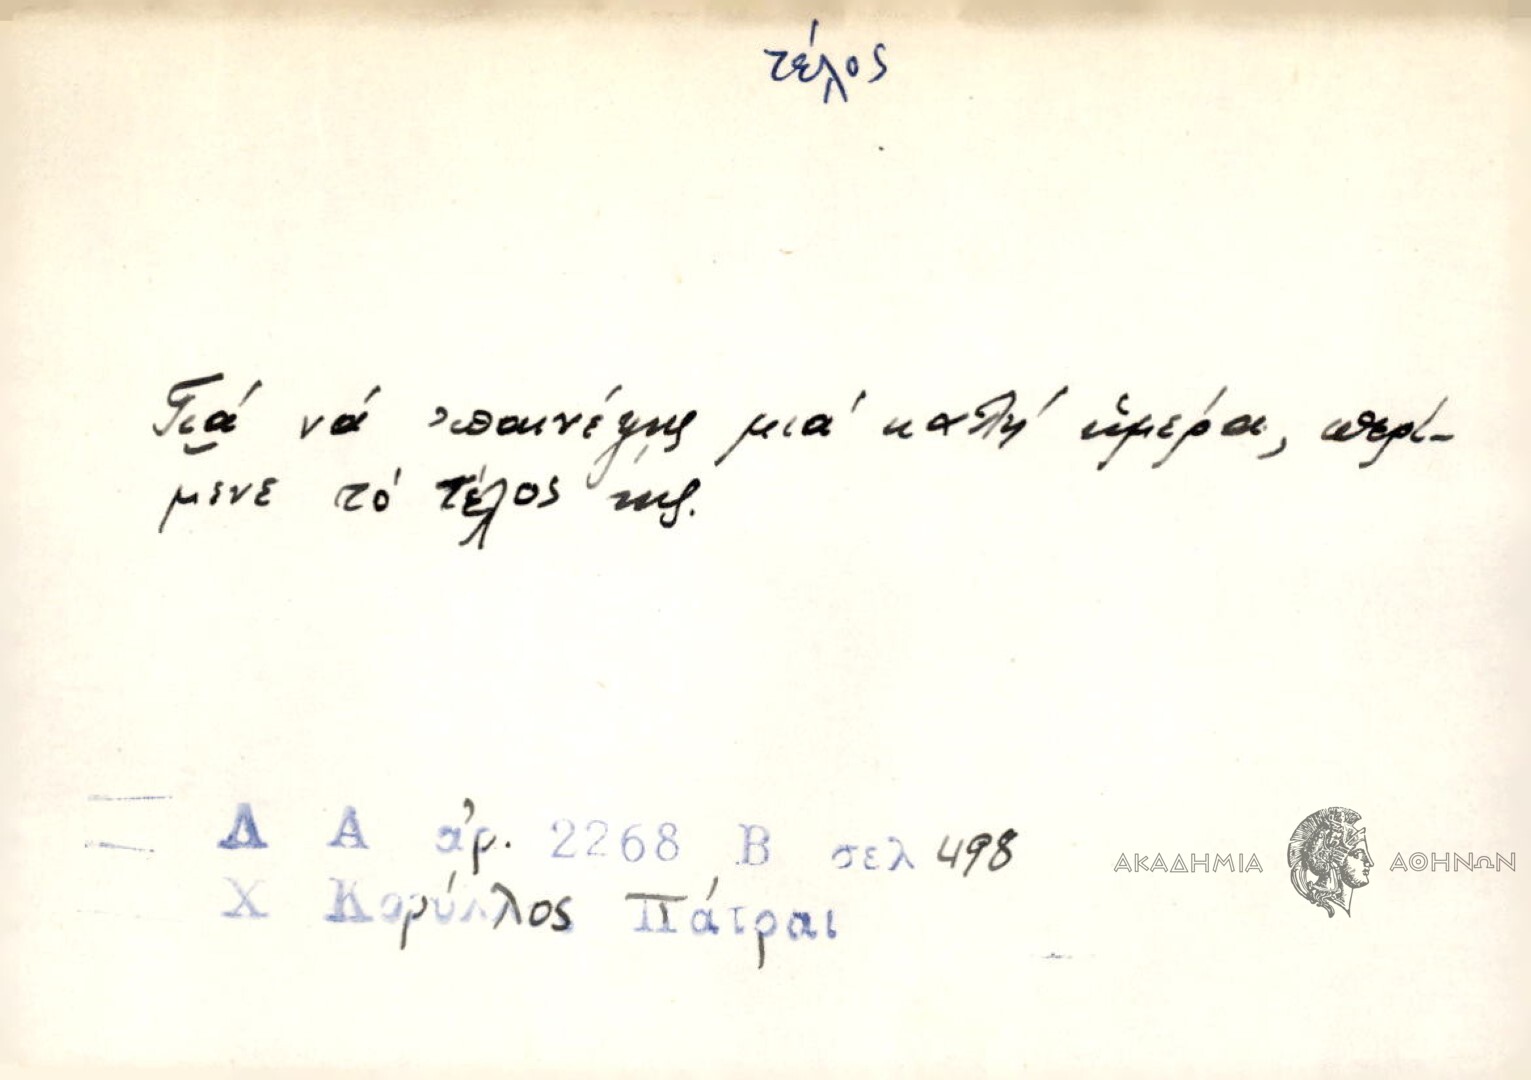 τέλος
Γιά νά ἐπαινέσης μιά καλή ἡμέρα, περί-
μενε τό τέλος της.
Λ Α ἀρ. 2268 Β σελ 498
Χ Κορύλλος Πάτραι
ΑΚΑΔΗΜΙΑ ΑΘΗΝΩΝ